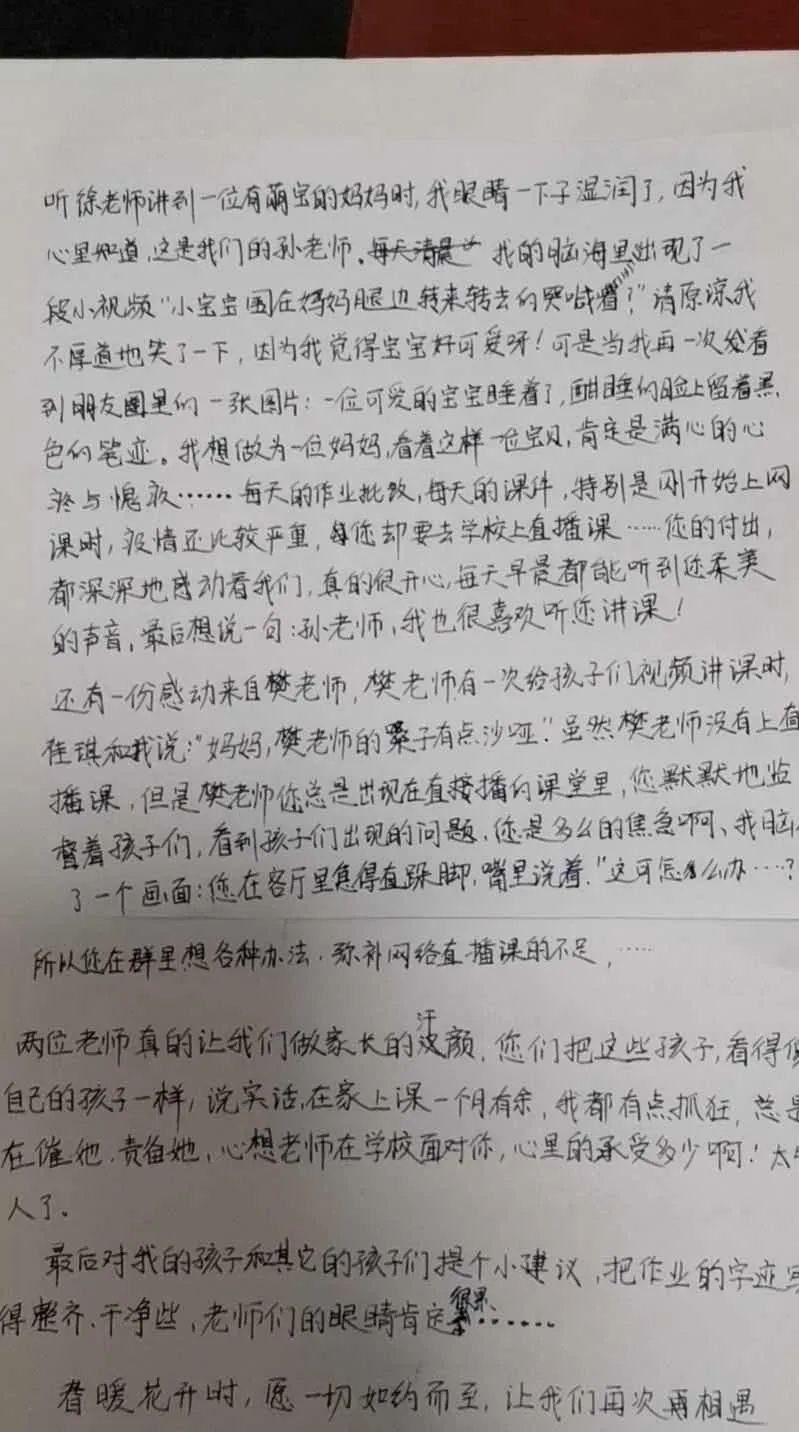 听徐老师讲到一位有萌宝的妈妈时,我眼睛一下子湿润了,因为我
心里知道,这是我们的孙老师。每天清晨 我的脑海里出现了一
段小视频"小宝宝围在妈妈腿边转来转去的哭喊着?"请原谅我
不厚道地笑了一下,因为我觉得宝宝好可爱呀!可是当我再一次看
到朋友圈里的一张图片:一位可爱的宝宝睡着了,酣睡的脸上留着黑
色的笔迹。我想做为一位妈妈,看着这样一位宝贝,肯定是满心的心
疼与愧疚……每天的作业批改,每天的课件,特别是刚开始上网
课时,疫情还比较严重,您却要去学校上直播课……您的付出,
都深深地感动着我们,真的很开心,每天早晨都能听到您柔美
的声音,最后想说一句:孙老师,我也很喜欢听您讲课!
还有一份感动来自樊老师,樊老师有一次给孩子们视频讲课时,
佳琪和我说:"妈妈,樊老师的嗓子有点沙哑"。虽然樊老师没有上直
播课,但是樊老师您总是出现在直接播的课堂里,您默默地监
督着孩子们,看到孩子们出现的问题、您是多么的焦急啊、我脑
了一个画面:您在客厅里焦得直跺脚,嘴里说着."这可怎么办……?
所以您在群里想各种办法.弥补网络直播课的不足,……
两位老师真的让我们做家长的汗颜,您们把这些孩子,看得
自己的孩子一样,说实话,在家上课一个月有余,我都有点抓狂,总是
在催她.责备她、心想老师在学校面对你,心里的承受多少啊!太
人了.
最后对我的孩子和其它的孩子们提个小建议,把作业的字迹写
得整齐.干净些,老师们的眼睛肯定很累……
春暖花开时,愿一切如约而至,让我们再次再相遇